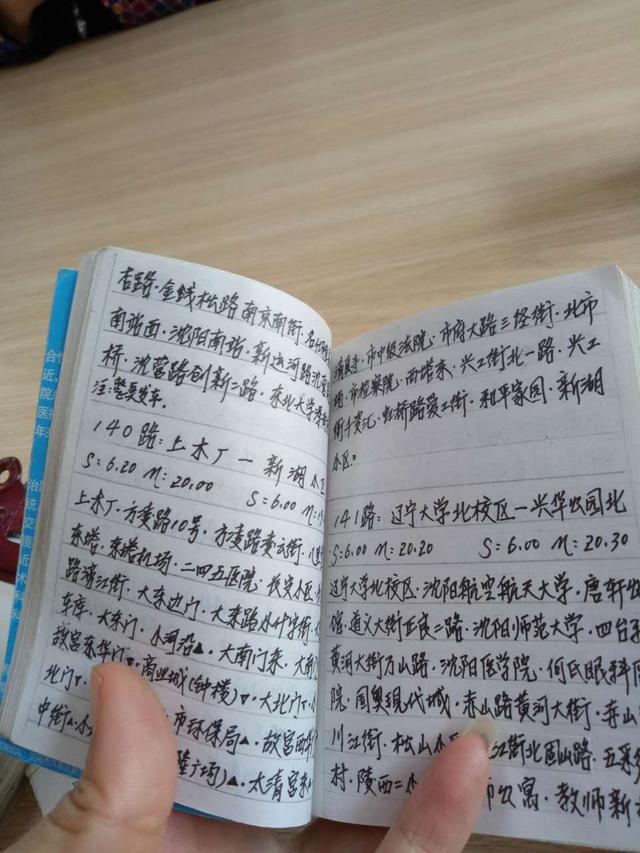 杏路·金钱松路南京南街·
南站西·沈阳南站·新运河路沈营
桥·沈营路创新二路·东北大学浑南
注:整点发车。
140路:上木厂一新湖小区
S=6.20 M=20.00 S=6.00 M=
上木厂·方凌路10号·方凌路凌云街·
东塔·东塔机场·二四五医院·长安小区·
路滂江街·大东边门·大东路小什字街·
车库·大东门·小河沿▲·大南门东·大南门
故宫东华门▼·商业城(钟楼)▼·大北门▼·
北门▼
中街▲·
市环保局▲·故宫西华
广场)▲·太清宫东
市中级法院·市府大路三经街·北市
场·市检察院·西塔东·兴工街北一路·兴工
街十贵汇·虹桥路爱工街·和平家园·新湖
小区。
141路:辽宁大学北校区一兴华公园北
S=6.00 M=20.20 S=6.00 M=20.30
辽宁大学北校区·沈阳航空航天大学·唐轩公
馆·道义大街正良三路·沈阳师范大学·四台子
黄河大街万山路·沈阳医学院·何氏眼科医
院·国奥现代城·赤山路黄河大街·寿山
川江街·松山小区 江街北固山路·五彩
村·陵西二小 公寓·教师新
合
近,
院
医
年
治
统
交
要
近
术
科